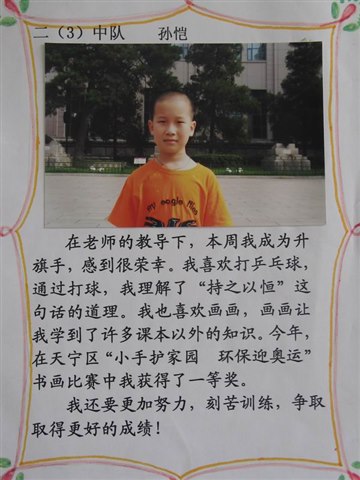 二（3）中队 孙恺
my eagle
在老师的教导下，本周我成为升
旗手，感到很荣幸。我喜欢打乒乓球，
通过打球，我理解了“持之以恒”这
句话的道理。我也喜欢画画，画画让
我学到了许多课本以外的知识。今年，
在天宁区“小手护家园 环保迎奥运”
书画比赛中我获得了一等奖。
我还要更加努力，刻苦训练，争取
取得更好的成绩！